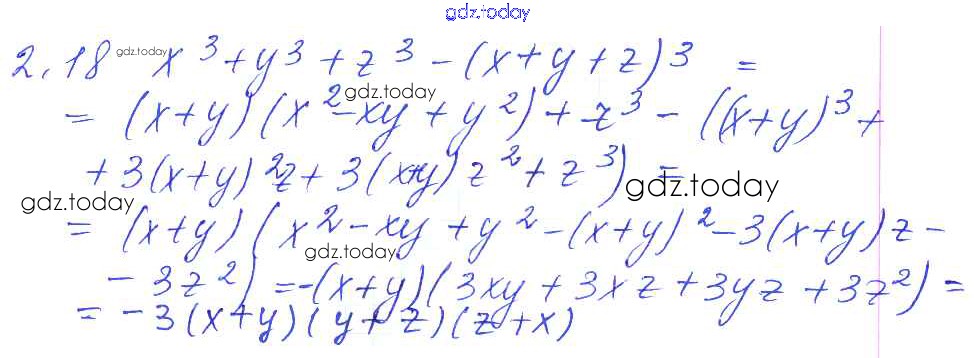 gdz.today
2.18 gdz.today x³ + y³ + z³ - (x + y + z)³ =
gdz.today
= (x + y)(x² - xy + y²) + z³ - ((x + y)³ +
+ 3(x + y)²z + 3(x + y)z² + z³) =
gdz.today
gdz.today
= (x + y)(x² - xy + y² - (x + y)² - 3(x + y)z -
gdz.today
- 3z²) = -(x + y)(3xy + 3xz + 3yz + 3z²) =
= - 3(x + y)(y + z)(z + x)